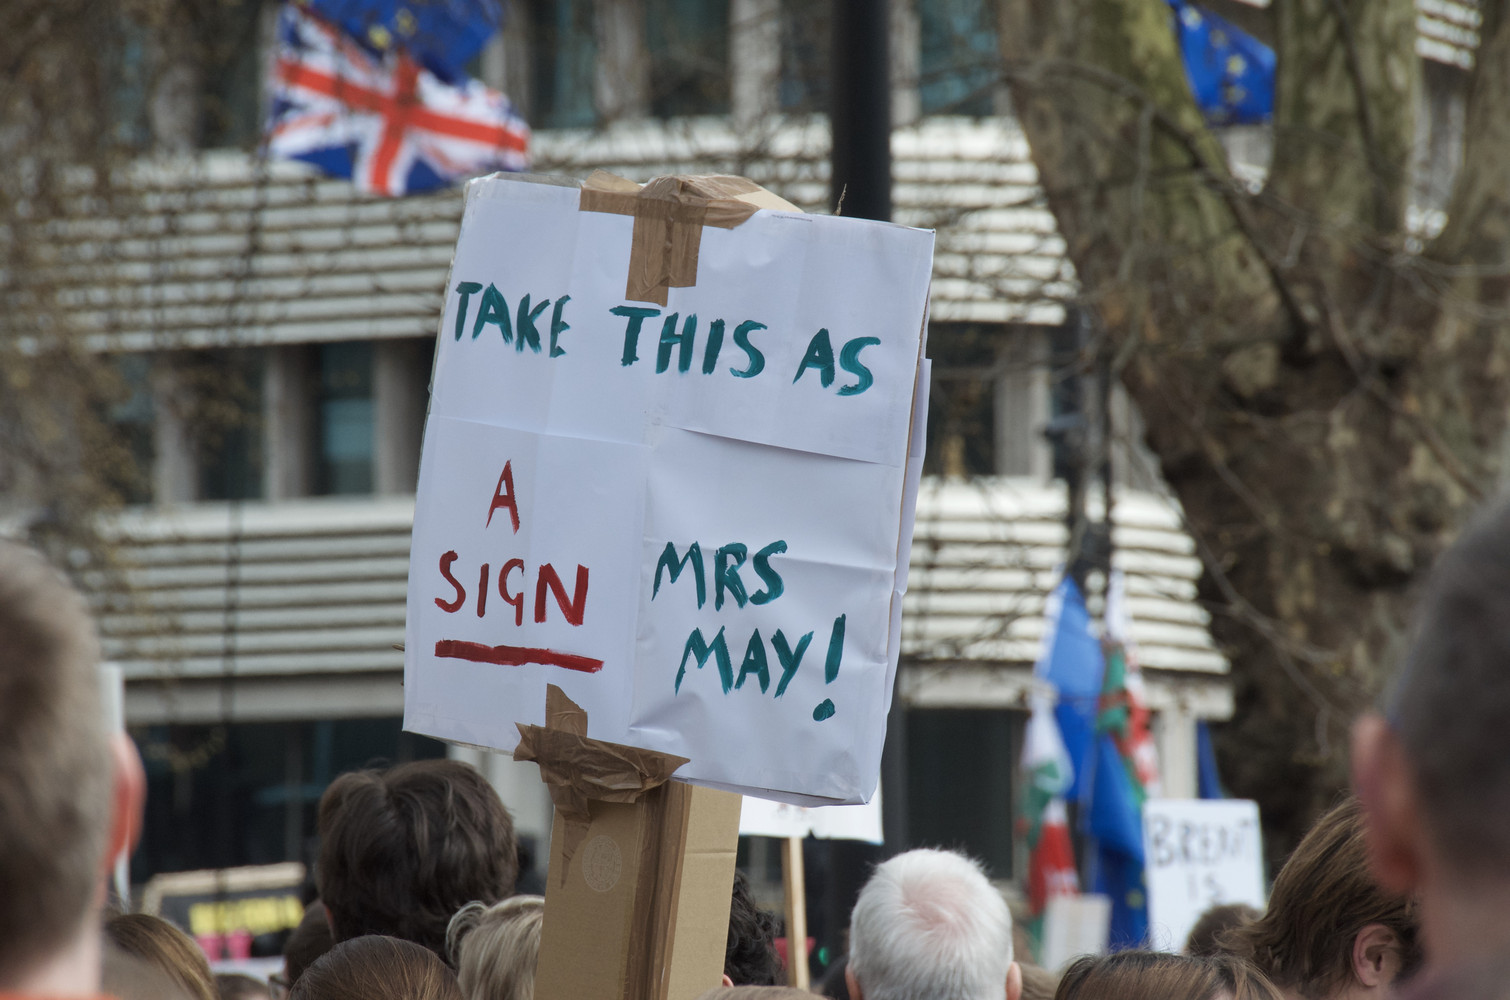 TAKE THIS AS
A
SIGN
MRS
MAY!
BREXIT
IS